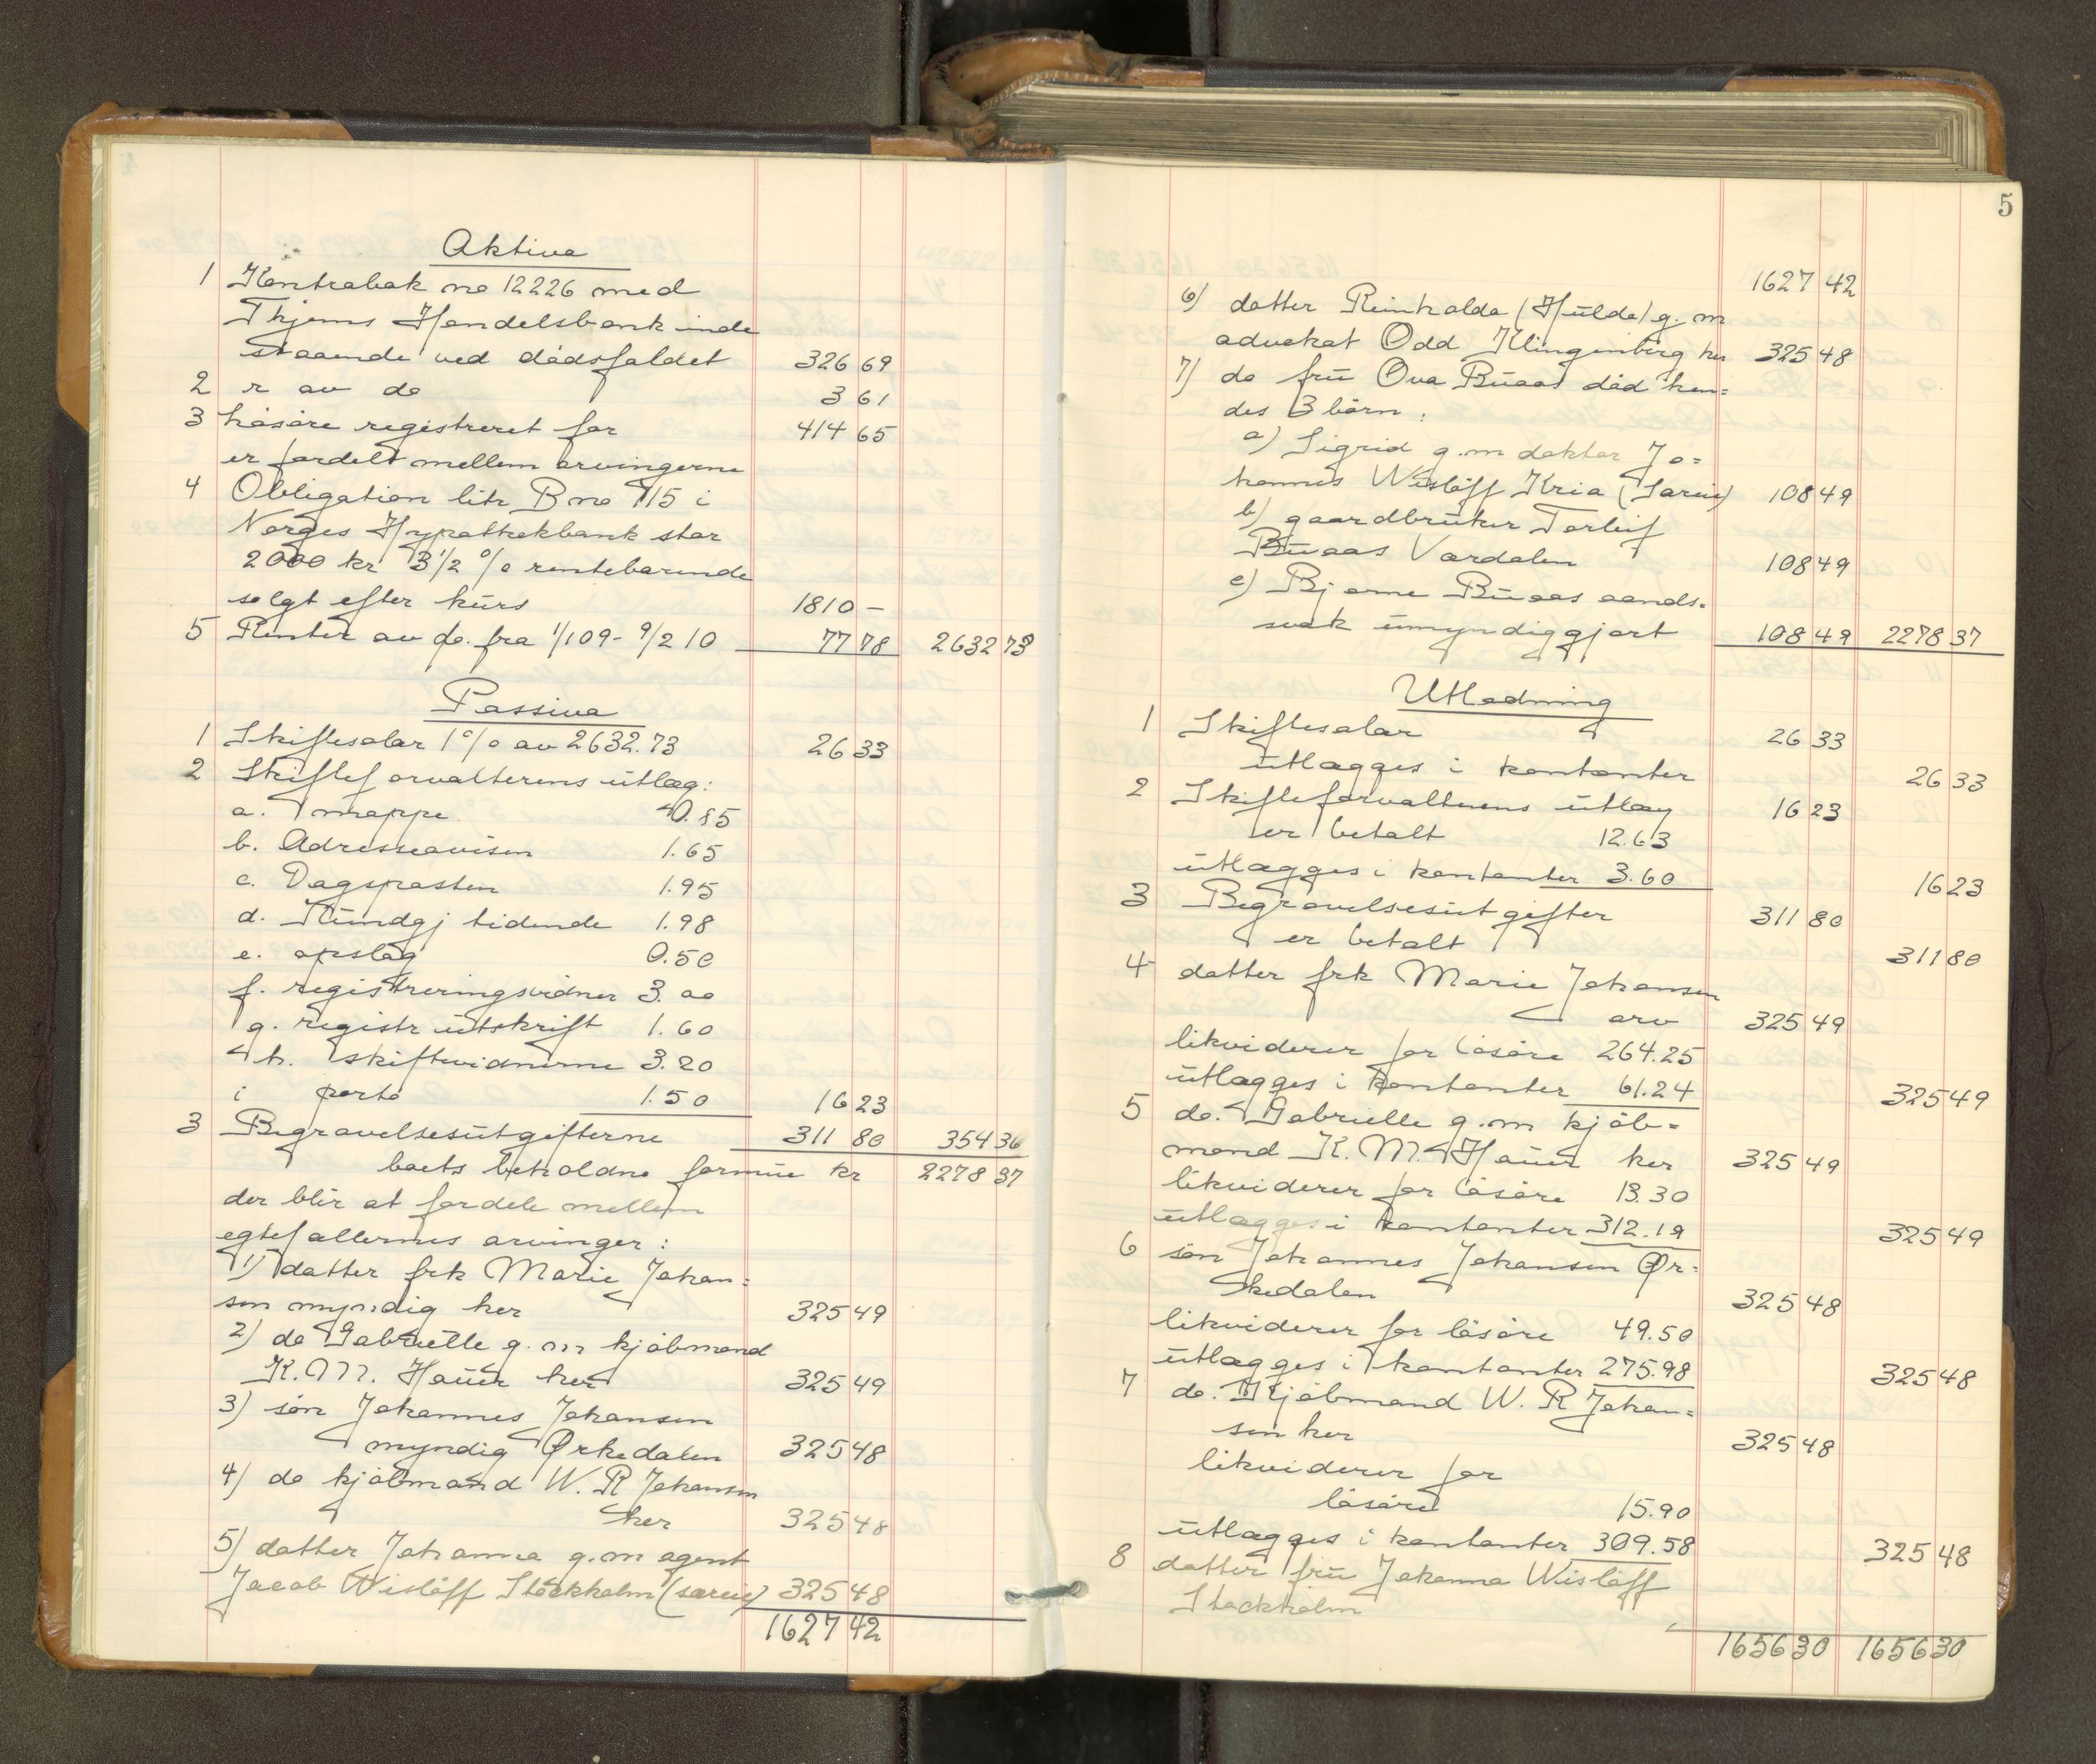 Aktiva
1 Kontrabok no 12226 med
Thjems Handelsbank inde
staaende ved dödsfaldet 326 69
2 r av do 3 61
3 Lösöre registreret for 414 65
er fordelt mellem arvingerne
4 Obligation litr B no 715 i
Norges Hypothekbank stor
2000 kr 3 1/2 % rentebærende
solgt efter kurs 1810 –
5 Renter av do. fra 1/1 09 - 9/2 10 77 78 2632 73
Passiva
1 Skiftesalær 1 % av 2632.73 26 33
2 Skifteforvalterens utlæg:
a. mappe 0.85
b. Adresseavisen 1.65
c. Dagsposten 1.95
d. Kundgj tidende 1.98
e. opslag 0.50
f. registreringsvidner 3.00
g. registr utskrift 1.60
h. skiftevidnerne 3.20
i porto 1.50 16 23
3 Begravelsesutgifterne 311 80 354 36
boets beholdne formue kr 2278 37
der blir at fordele mellem
egtefællernes arvinger:
1) datter frk Marie Johan=
sen myndig her 325 49
2) do Gabrielle g. m kjöbmand
K. M. Hauer her 325 49
3) sön Johannes Johansen
myndig Ørkedalen 325 48
4) do kjöbmand W. R Johansen
her 325 48
5) datter Johanna g. m agent
Jacob Wislöff Stockholm (særeie) 325 48
1627 42
5
1627 42
6) datter Reinholda (Hulda) g. m
advokat Odd Klingenberg her 325 48
7) do fru Ova Buaas död hen=
des 3 börn:
a) Sigrid g. m doktor Jo=
hannes Wislöff Kria (Særeie) 108 49
b) gaardbruker Torleif
Buaas Værdalen 108 49
c) Bjarne Buaas aands=
svak umyndiggjort 108 49 2278 37
Utlodning
1 Skiftesalær 26 33
utlægges i kontanter 26 33
2 Skifteforvalterens utlæg 16 23
er betalt 12.63
utlægges i kontanter 3.60 16 23
3 Begravelsesutgifter 311 80
er betalt 311 80
4 datter frk Marie Johansen
arv 325 49
likviderer for lösöre 264.25
utlægges i kontanter 61.24 325 49
5 do. Gabrielle g. m kjöb=
mand K. M. Hauer her 325 49
likviderer for lösöre 13.30
utlægges i kontanter 312.19 325 49
6 sön Johannes Johansen Ør=
kedalen 325 48
likviderer for lösöre 49.50
utlægges i kontanter 275.98 325 48
7 do. Kjöbmand W. R Johan=
sen her 325 48
likviderer for
lösöre 15.90
utlægges i kontanter 309.58 325 48
8 datter fru Johanna Wislöff
Stockholm
1656 30 1656 30